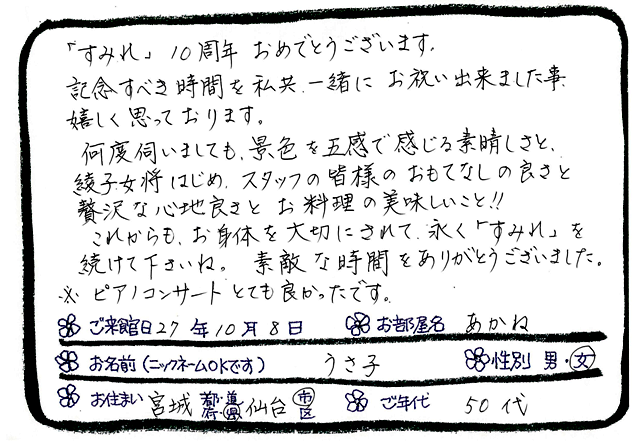 「すみれ」10周年 おめでとうございます。
記念すべき時間を私共、一緒に お祝い出来ました事
嬉しく思っております。
何度伺いましても、景色を五感で感じる素晴しさと、
綾子女将はじめ、スタッフの皆様のおもてなしの良さと
贅沢な心地良さと お料理の美味しいこと!!
これからも、お身体を大切にされて、永く「すみれ」を
続けて下さいね。 素敵な時間をありがとうございました。
※ ピアノコンサート とても良かったです。
ご来館日 27 年 10 月 8 日 お部屋名 あかね
お名前(ニックネームOKです) うさ子 性別 男・女
お住まい 宮城 都・道・府・県 仙台 市・区 ご年代 50代